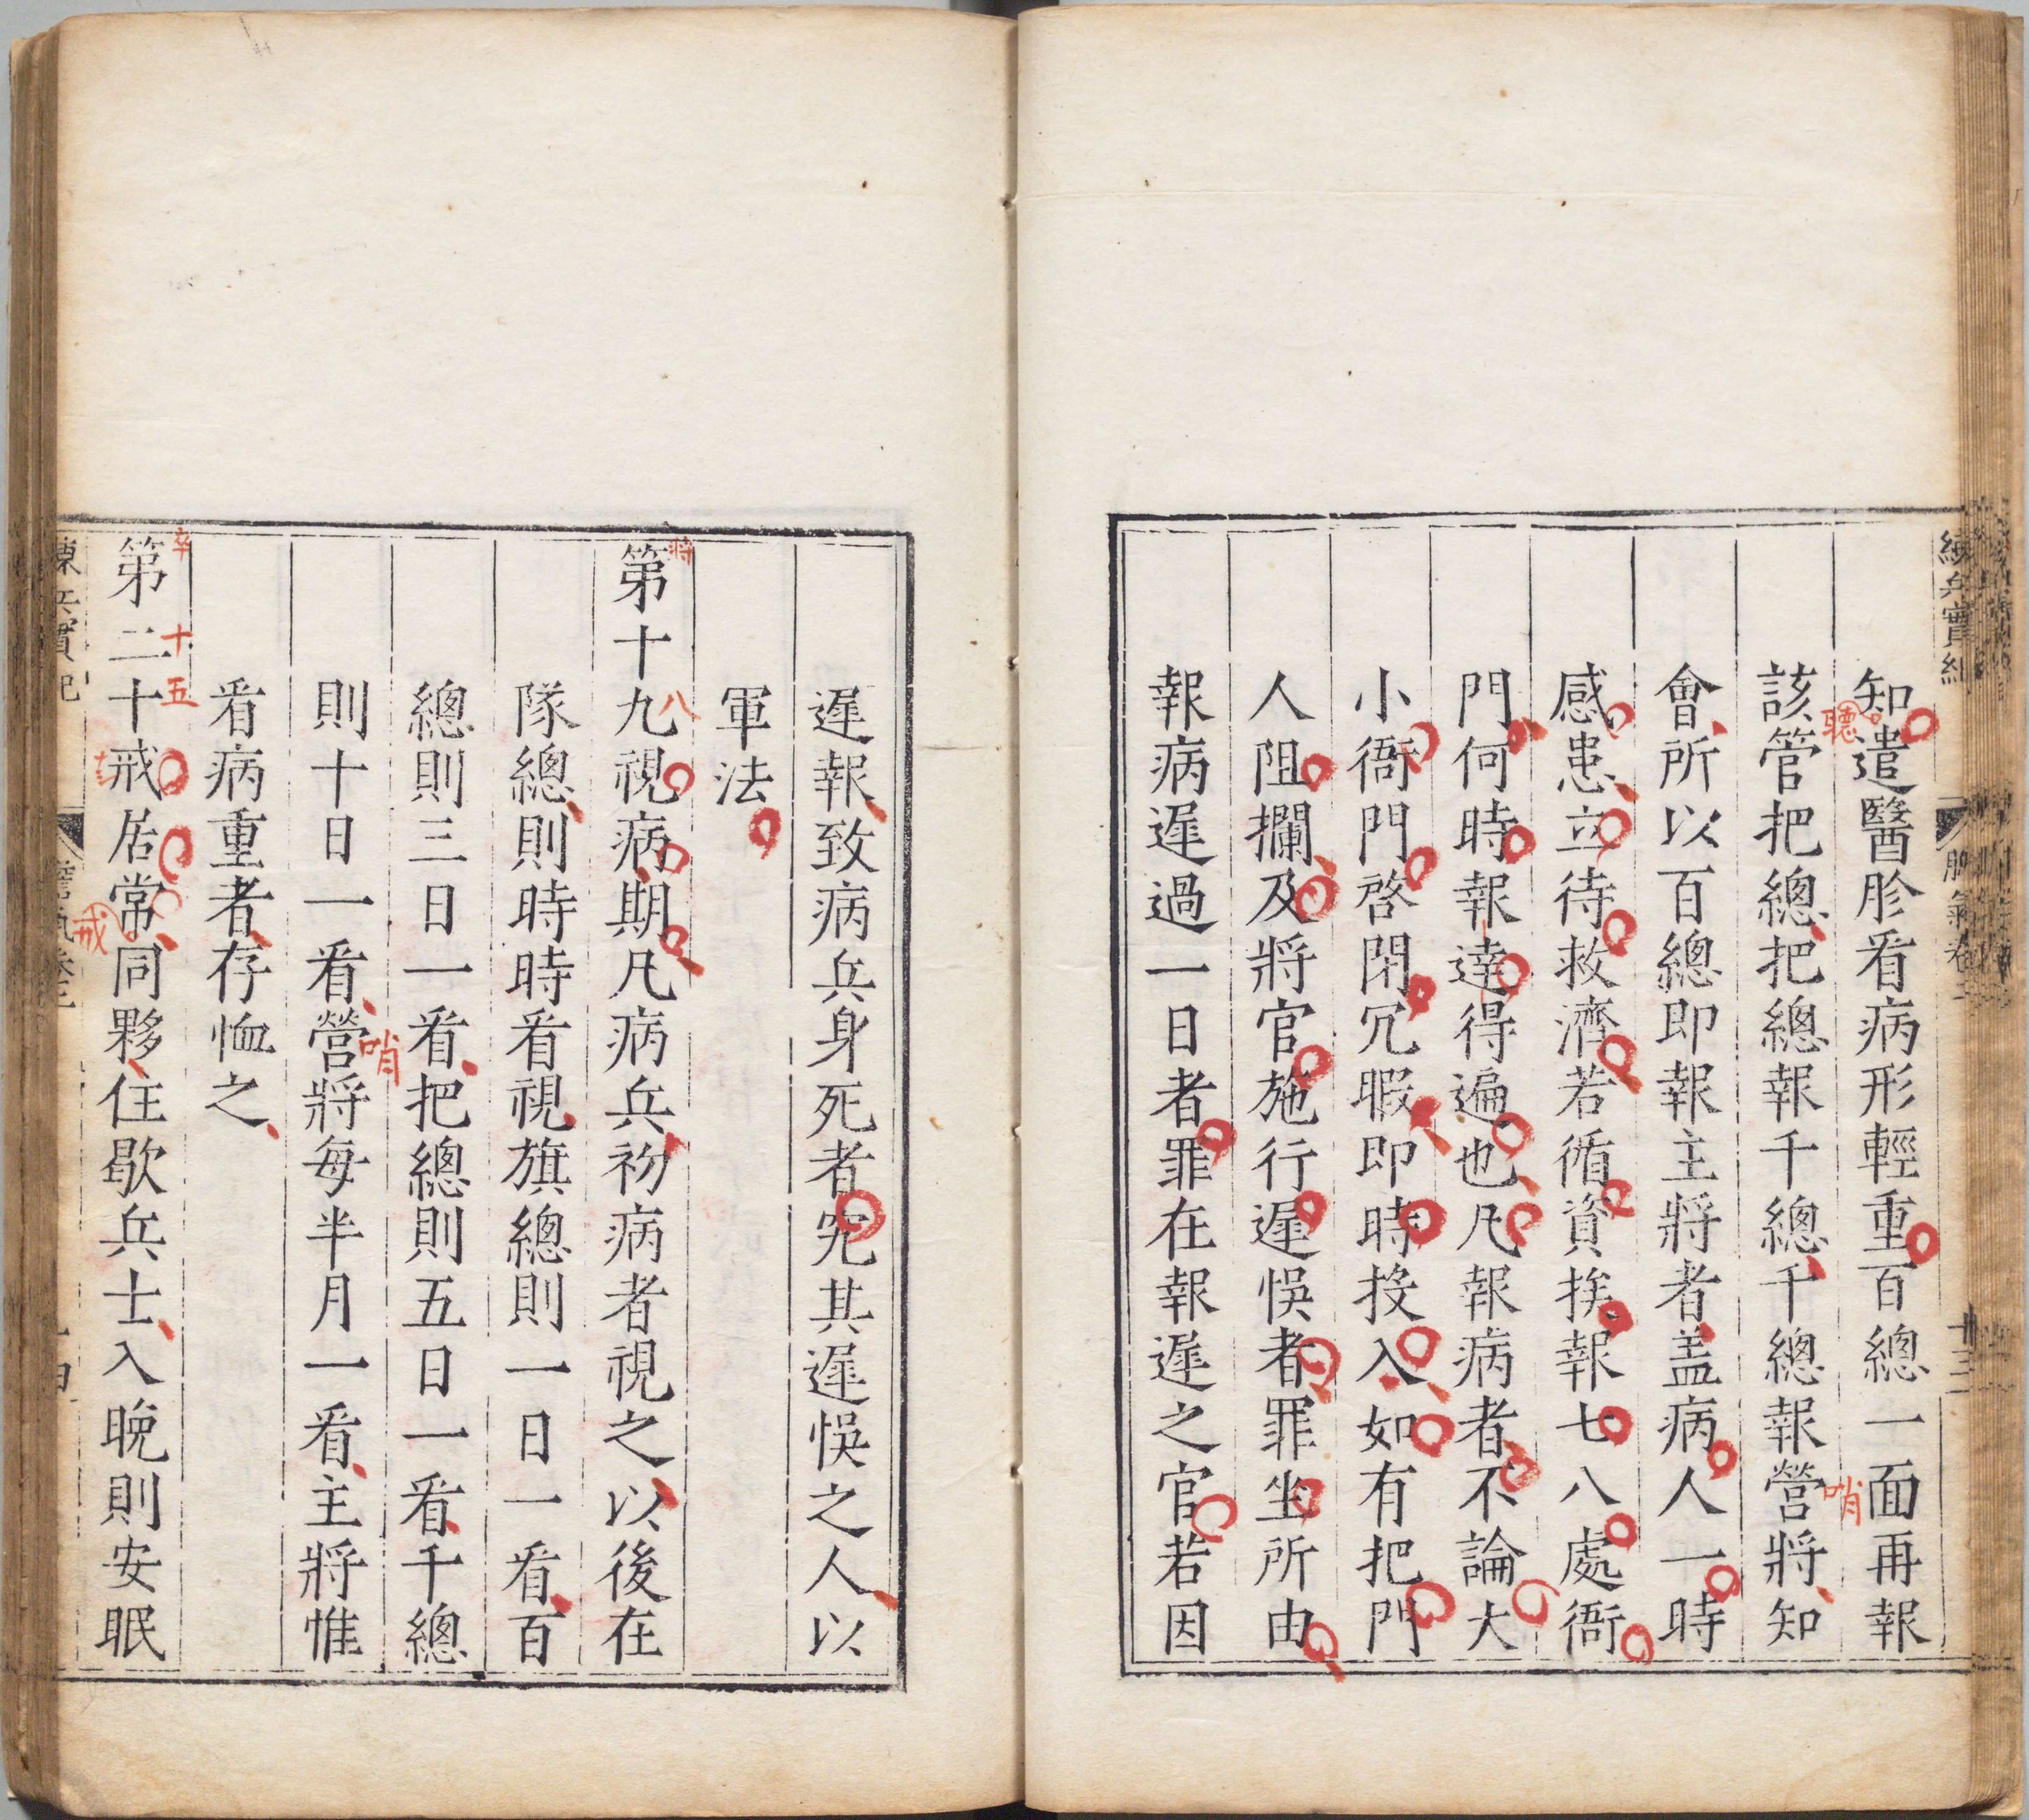 練兵實紀
膽氣卷
十三
知遣醫胗看病形輕重百總一面再報
聽
該管把總把總報千總千總報營將知
哨
會所以百總即報主將者盖病人一時
感患立待救濟若循資挨報七八處衙
門何時報達得遍也凡報病者不論大
小衙門啓閉冗暇即時投入如有把門
人阻攔及將官施行遲悞者罪坐所由
報病遲過一日者罪在報遲之官若因
遲報致病兵身死者究其遲悞之人以
軍法
第十九視病期凡病兵初病者視之以後在
將
八
隊總則時時看視旗總則一日一看百
總則三日一看把總則五日一看千總
則十日一看營將每半月一看主將惟
哨
看病重者存恤之
第二十戒居常同夥住歇兵士入晚則安眠
卒
十五
戒